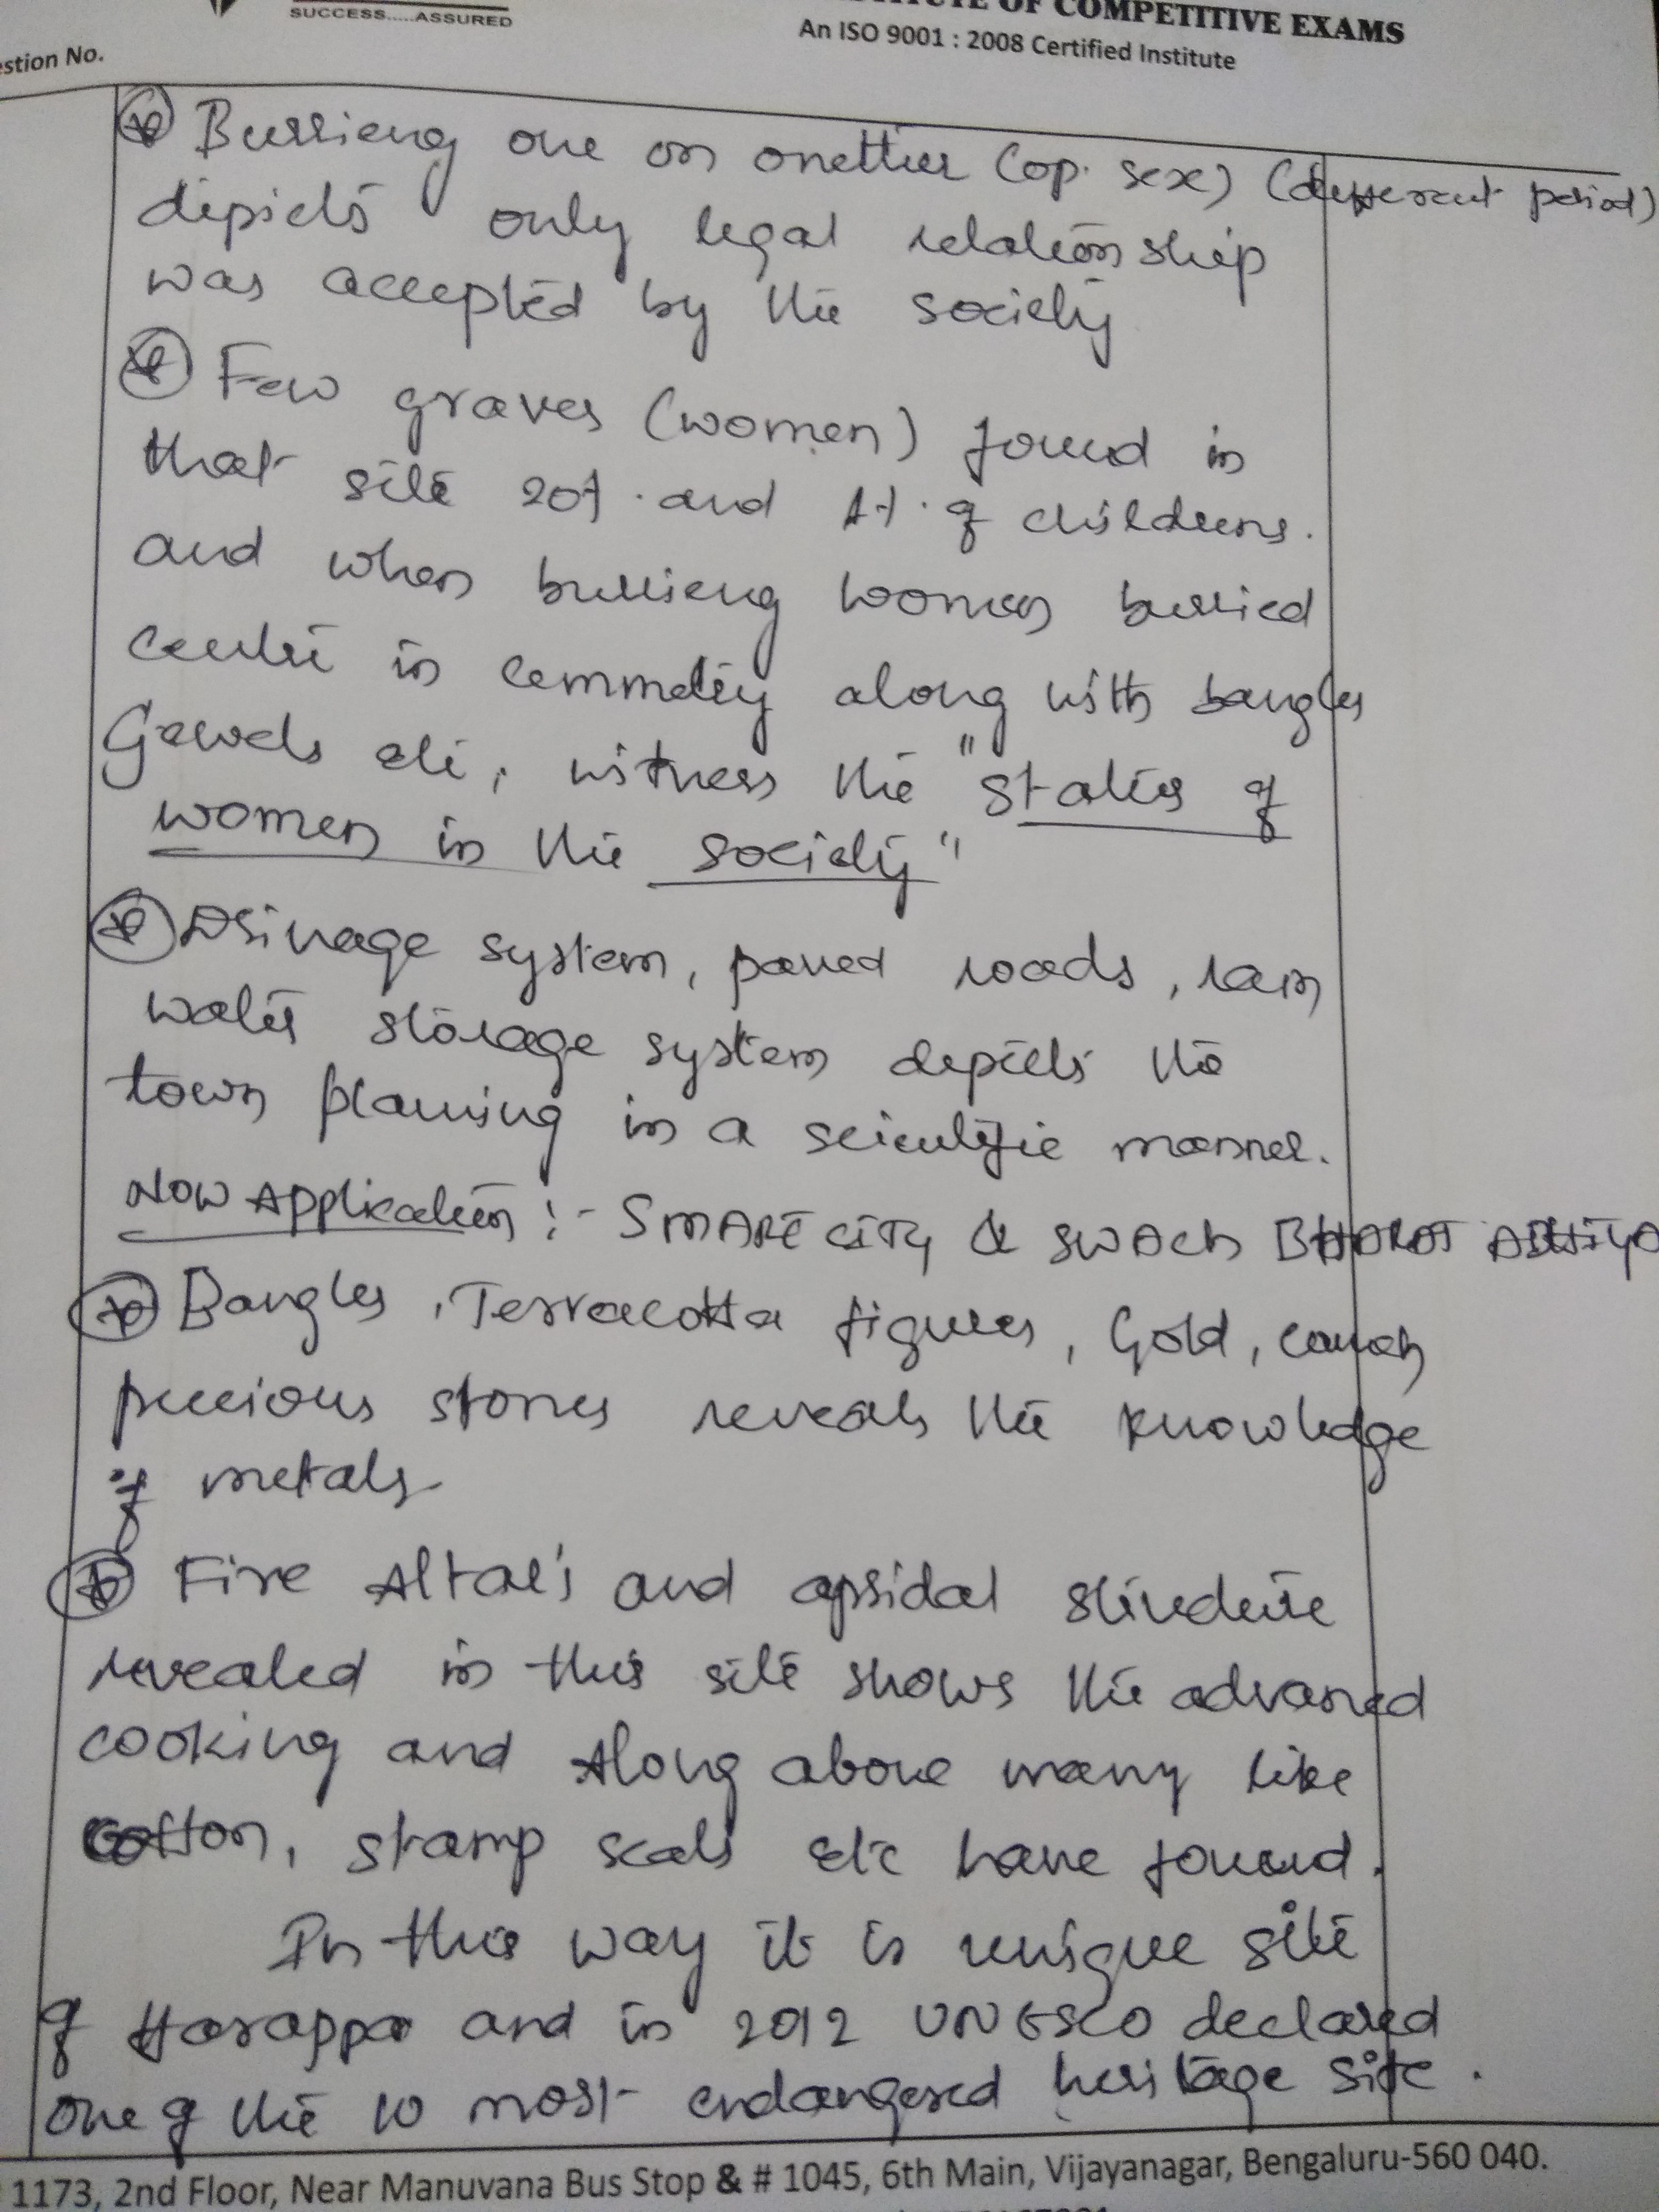 SUCCESS.....ASSURED
OF COMPETITIVE EXAMS
An ISO 9001 : 2008 Certified Institute
estion No.
Burrieng one on onether (op. sex) (different period)
depicts only legal relationship
was accepted by the society
Few graves (women) found in
that site 20%. and 1%. of childrens.
and when burrieng woman burried
centre in cemmetey along with bangles
Gewels etc, witness the "status of
women in the society"
Drinage system, paved roads, rain
water storage system depicts the
town planning in a scientific manner.
NOW Application :- SMART CITY & SWACh BHARAT ABHIYA
Bangles, Terracotta figures, Gold, counch
precious stones reveals the knowledge
of metals
Fire Altar's and apsidal structure
revealed in this site shows the advanced
cooking and Along above many like
cotton, stamp seals etc have found.
In this way it is unique site
of Harappa and in 2012 UNESCO declared
one of the 10 most endangered heritage site.
1173, 2nd Floor, Near Manuvana Bus Stop & # 1045, 6th Main, Vijayanagar, Bengaluru-560 040.